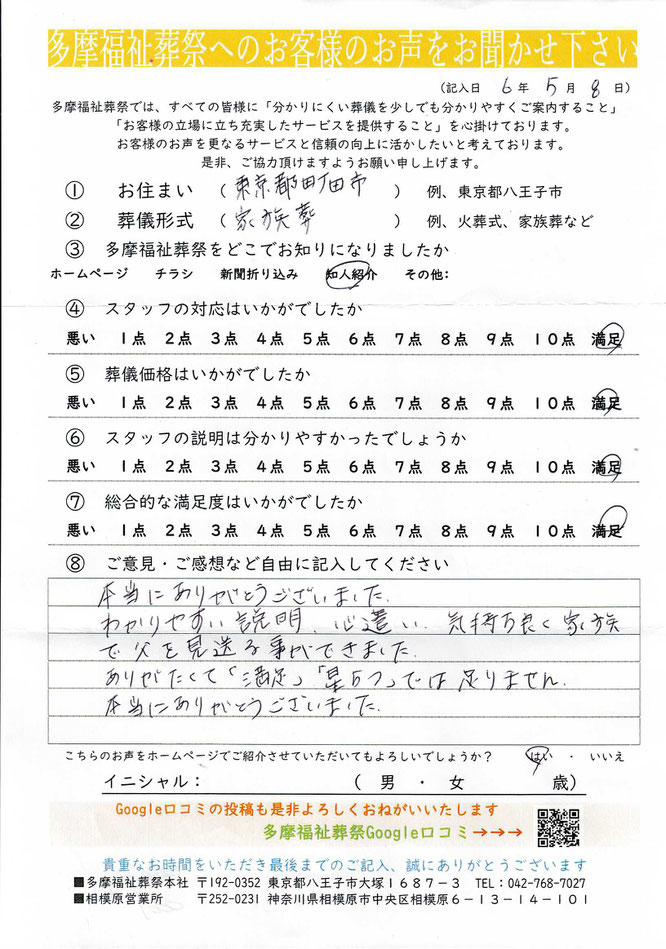 多摩福祉葬祭へのお客様のお声をお聞かせ下さい
(記入日 6年 5月 8日)
多摩福祉葬祭では、すべての皆様に「分かりにくい葬儀を少しでも分かりやすくご案内すること」
「お客様の立場に立ち充実したサービスを提供すること」を心掛けております。
お客様のお声を更なるサービスと信頼の向上に活かしたいと考えております。
是非、ご協力頂けますようお願い申し上げます。
① お住まい (東京都町田市) 例、東京都八王子市
② 葬儀形式 (家族葬) 例、火葬式、家族葬など
③ 多摩福祉葬祭をどこでお知りになりましたか
ホームページ チラシ 新聞折り込み 知人紹介 その他:
④ スタッフの対応はいかがでしたか
悪い 1点 2点 3点 4点 5点 6点 7点 8点 9点 10点 満足
⑤ 葬儀価格はいかがでしたか
悪い 1点 2点 3点 4点 5点 6点 7点 8点 9点 10点 満足
⑥ スタッフの説明は分かりやすかったでしょうか
悪い 1点 2点 3点 4点 5点 6点 7点 8点 9点 10点 満足
⑦ 総合的な満足度はいかがでしたか
悪い 1点 2点 3点 4点 5点 6点 7点 8点 9点 10点 満足
⑧ ご意見・ご感想など自由に記入してください
本当にありがとうございました。
わかりやすい説明、心遣い、気持ち良く家族
で父を見送る事ができました。
ありがたくて「満足」「星5つ」では足りません。
本当にありがとうございました。
こちらのお声をホームページでご紹介させていただいてもよろしいでしょうか? はい・いいえ
イニシャル: (男・女 歳)
Google口コミの投稿も是非よろしくおねがいいたします
多摩福祉葬祭Google口コミ→→→
貴重なお時間をいただき最後までのご記入、誠にありがとうございます
■多摩福祉葬祭本社 〒192-0352 東京都八王子市大塚1687-3 TEL:042-768-7027
■相模原営業所 〒252-0231 神奈川県相模原市中央区相模原6-13-14-101